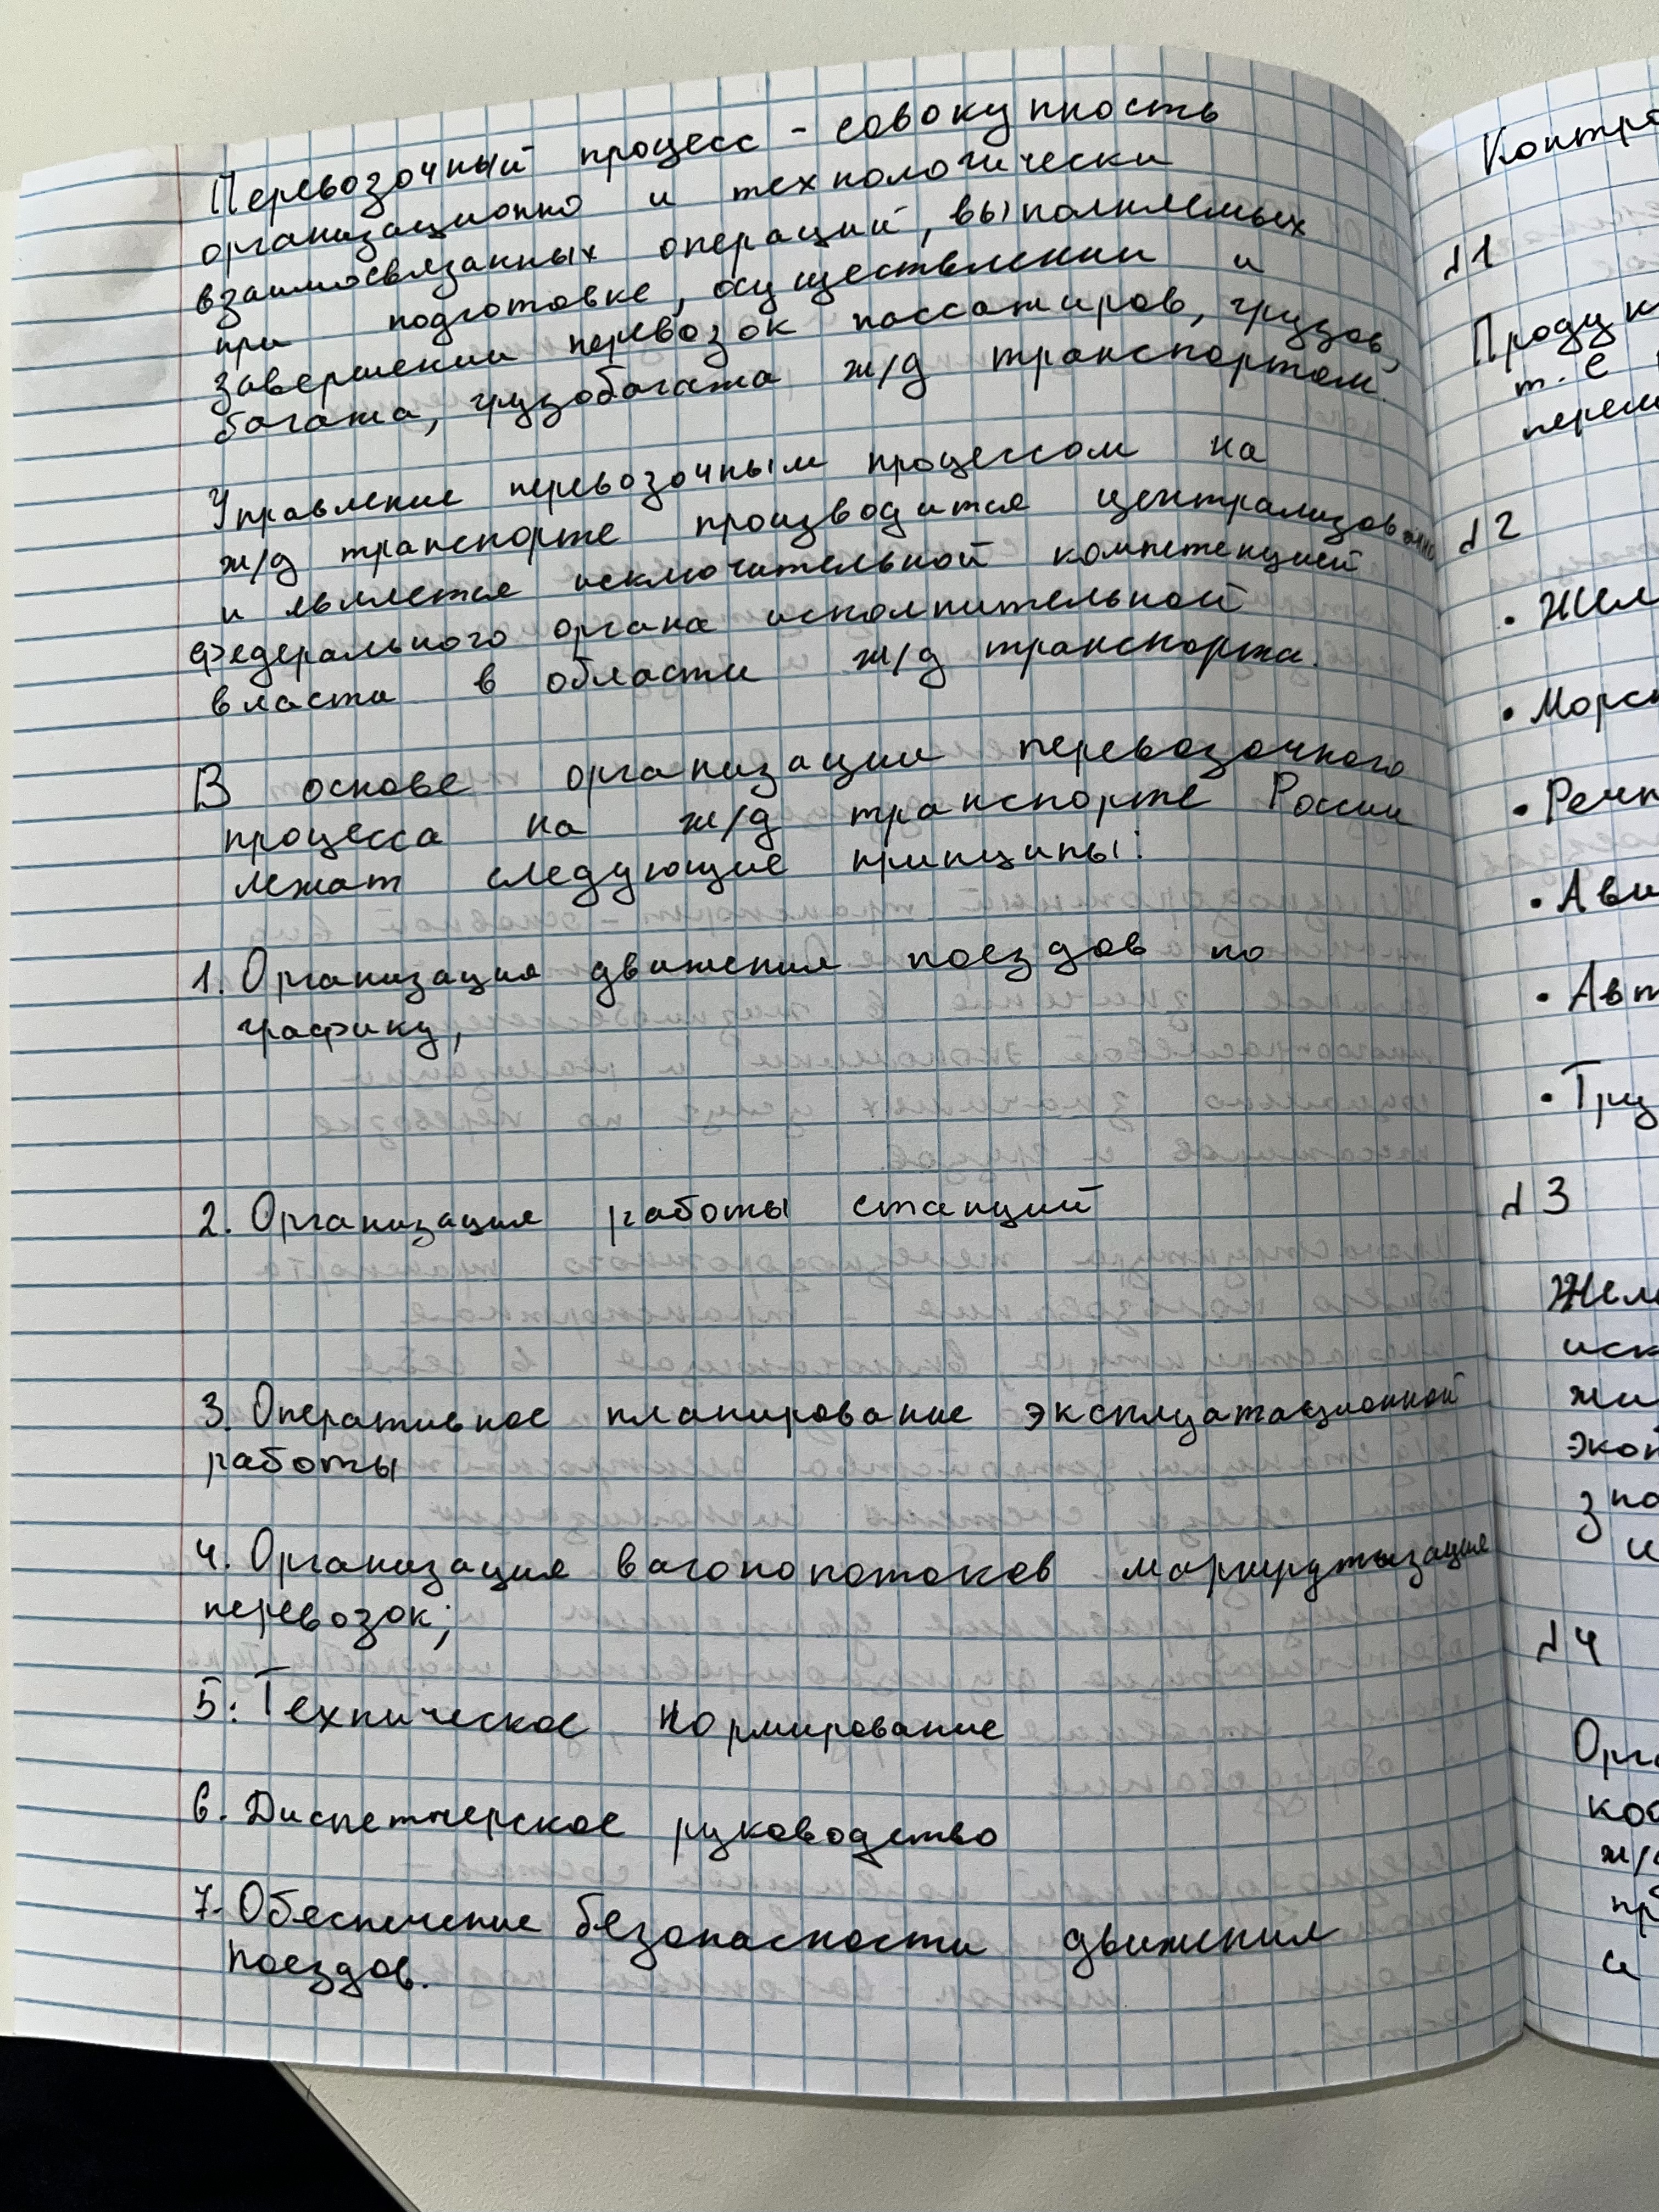 Перевозочный процесс - совокупность
организационно и технологически
взаимосвязанных операций, выполняемых
при подготовке, осуществлении и
завершении перевозок пассажиров, грузов,
багажа, грузобагажа ж/д транспортом.
Управление перевозочным процессом на
ж/д транспорте производится централизованно
и является исключительной компетенцией
федерального органа исполнительной
власти в области ж/д транспорта.
В основе организации перевозочного
процесса на ж/д транспорте России
лежат следующие принципы:
1. Организация движения поездов по
графику,
2. Организация работы станций
3. Оперативное планирование эксплуатационной
работы
4. Организация вагонопотоков маршрутизация
перевозок;
5. Техническое нормирование
6. Диспетчерское руководство
7. Обеспечение безопасности движения
поездов.
Контро
№1
Продук
т. е
перем
№2
• Жел
• Морск
• Речн
• Ави
• Авт
• Тру
№3
Желе
иск
жи
экон
зна
и
№4
Орга
кос
ж/
пр
и